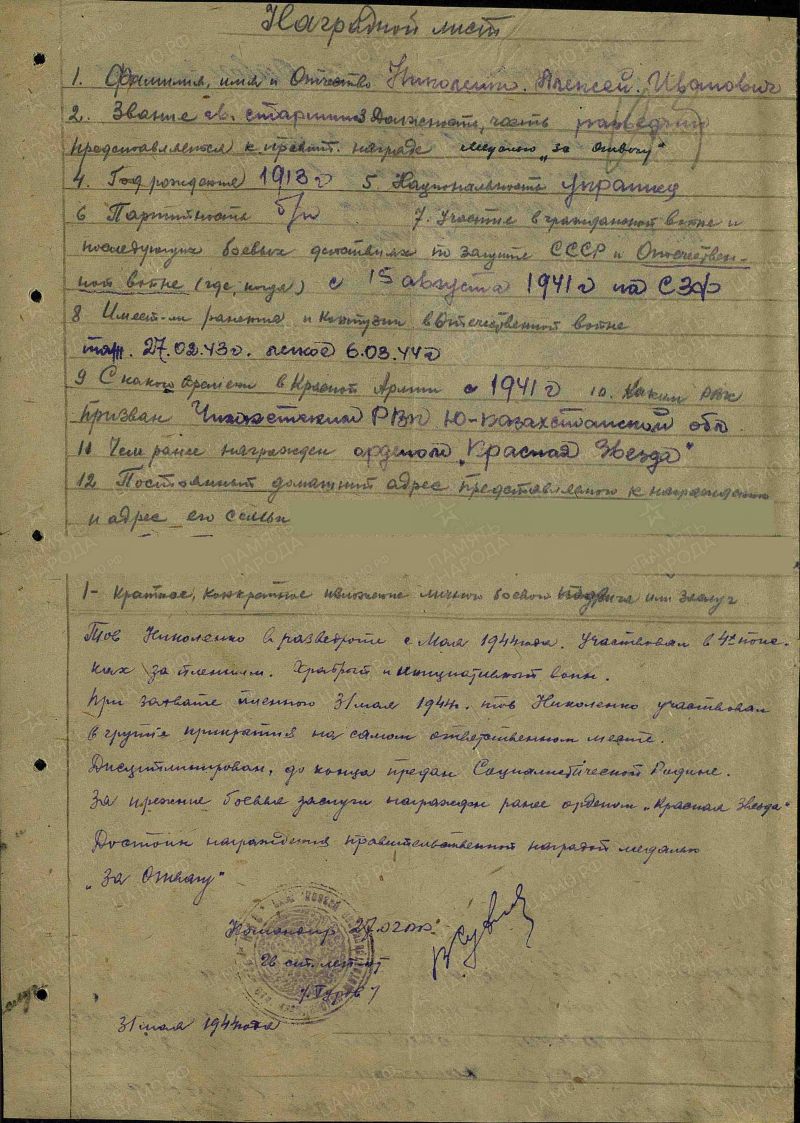 Наградной лист
1. Фамилия, имя и Отчество Николенко Алексей Иванович
2. Звание гв. старшина 3 Должность, часть разведчик
представляется к правит. награде медалью „За отвагу"
4. Год рождения 1913 г 5. Национальность украинец
6 Партийность б/п 7. Участие в гражданской войне и
последующих боевых действиях по защите СССР и Отечествен-
ной войне (где, когда) с 15 августа 1941 г на СЗФ
8 Имеет-ли ранения и контузии в Отечественной войне
тяж. 27.02.43г. легкое 6.03.44г
9 С какого времени в Красной Армии с 1941 г 10. Каким РВК
призван РВК Ю-Казахстанской обл
11 Чем ранее награжден орденом „Красная Звезда"
12 Постоянный домашний адрес представляемого к награждению
и адрес его семьи
1- Краткое, конкретное изложение личного боевого подвига или заслуг
Тов Николенко в разведроте с Мая 1944года. Участвовал в 4х поис-
ках за пленным. Храбрый и инициативный воин.
При захвате пленного 31 мая 1944г. тов Николенко участвовал
в группе прикрытия на самом ответственном месте.
Дисциплинирован, до конца предан Социалистической Родине.
За прежние боевые заслуги награжден ранее орденом „Красная Звезда"
Достоин награждения правительственной наградой медалью
„За Отвагу"
Командир 27
Гв ст. лейт-нт
/Гуров/
31 мая 1944года